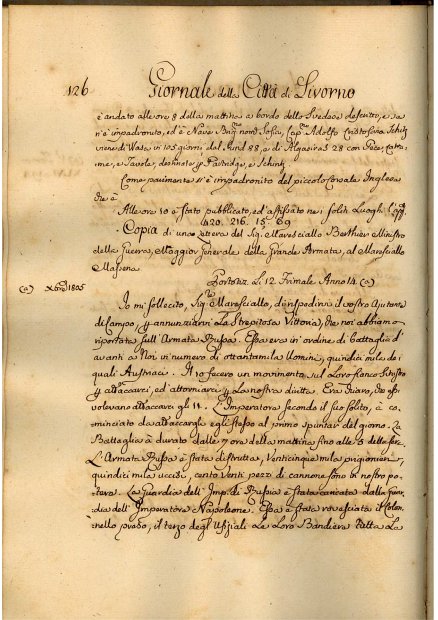 126 Giornale della Città di Livorno
è andato alle ore 8 della mattina a bordo dello Svedese descritto, e se
n'è impadronito, ed è Nave Brig. nom. Sofia, Cap. Adolfo Cristofano
viene di Wasa in 105 giorni, del Sund 88, e di Algesiras 28 con Pece, Catra-
me, e Tavole, Partridge, e
Come pavimente s'è impadronito del piccolo Corsale Inglese
che è
Alle ore 10 è stato pubblicato, ed affissato nei soliti Luoghi
420. 216. 15. 69
Copia di una lettera del Sig. Maresciallo Berthier Ministro
della Guerra, Maggior Generale della Grande Armata, al Maresciallo
Massena
li 12 Frimale Anno 14 (a)
(a) Xbre 1805
Io mi sollecito Sig. Maresciallo, di rispedirvi il vostro Ajutante
di Campo, p annunziarvi La Strepitosa Vittoria, che noi abbiamo
riportata sull'Armata Russa. Essa era in ordine di battaglia d'
avanti a Noi in numero di ottantamila Uomini, quindici mila de i
quali Austriaci. Io fecero un movimento sul Loro fianco Sinistro
p attaccarci, ed attorniare p La nostra diritta. Era chiaro, che essi
volevano attaccare gli 11. L'Imperatore secondo il suo solito, à co-
minciato da attaccargli egli stesso al primo spuntar del giorno. La
Battaglia à durato dalle 7 ore della mattina fino alle 5 della sera
L'Armata Russa è stata distrutta, Venticinque mila prigionieri,
quindici mila uccisi, cento Venti pezzi di cannone sono in nostro po-
tere. La Guardia dell'Imp. di Russia è stata caricata dalla Guar-
dia dell'Imperatore Napoleone. Essa è stata rovesciata il Colon-
nello preso, il terzo degli Uffiziali Le Loro Bandiere tutta La